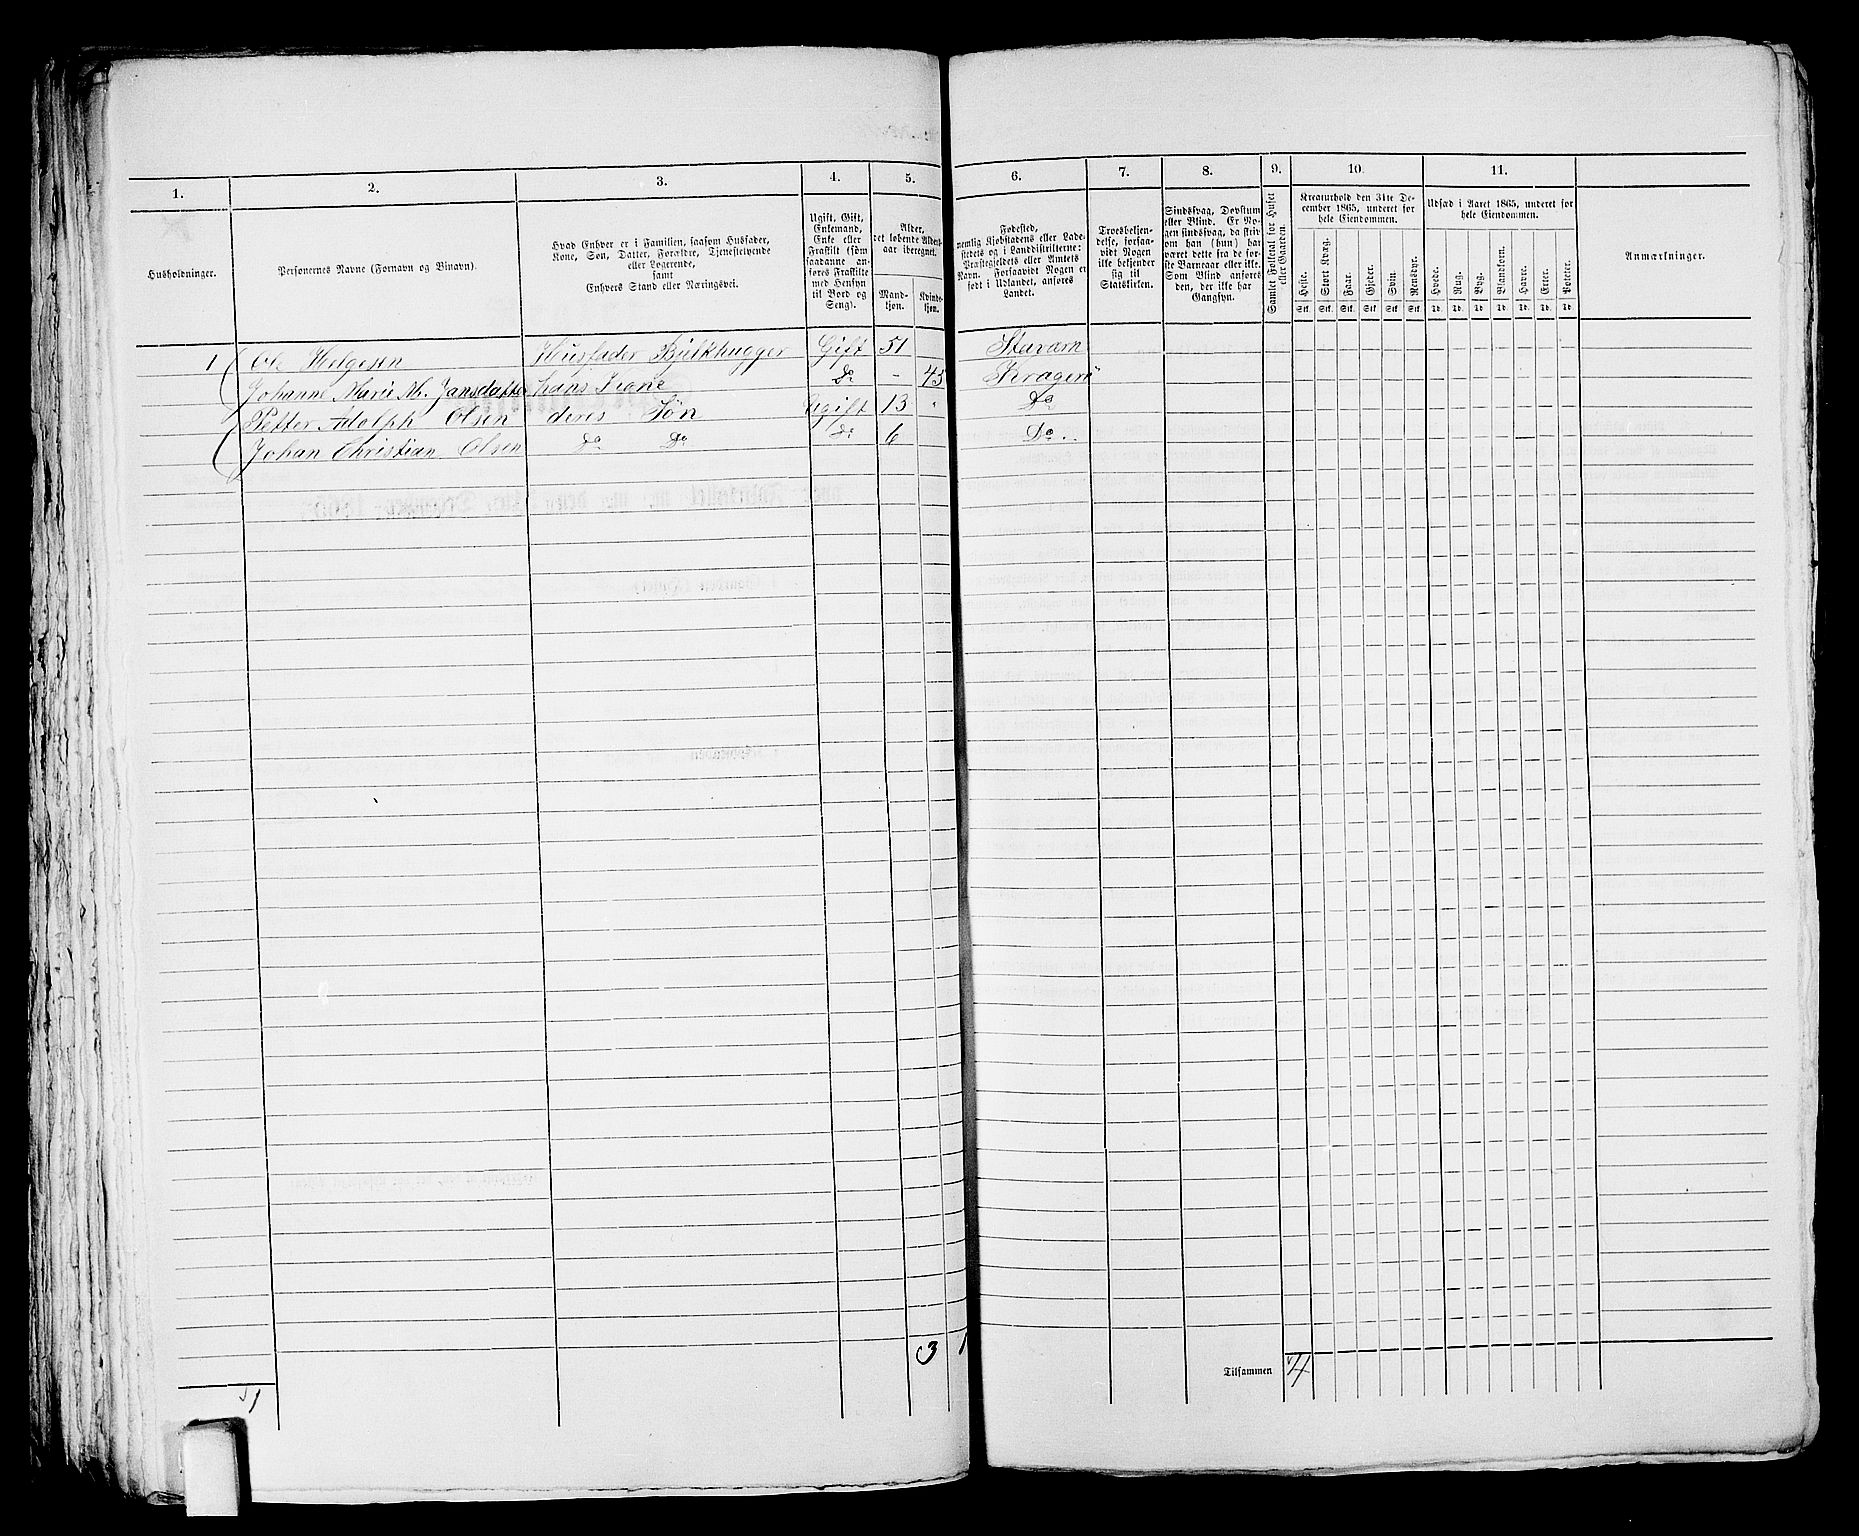 1. 2. 3. 4. 5. 6. 7. 8. 9. 10. 11.
Husholdninger.
Personernes Navne (Fornavn og Binavn).
Hvad Enhver er i Familien, saasom Husfader,
Kone, Søn, Datter, Forældre, Tjenestetyende
eller Logerende,
samt
Enhvers Stand eller Næringsvei.
Ugift, Gift,
Enkemand,
Enke eller
Fraskilt (som
saadanne an-
føres Fraskilte
med Hensyn
til Bord og
Seng).
Alder,
det løbende Alders-
aar iberegnet.
Mand-
kjøn.
Kvinde-
kjøn.
Fødested,
nemlig Kjøbstadens eller Lade-
stedets og i Landdistrikterne:
Præstegjeldets eller Amtets
Navn. Forsaavidt Nogen er
født i Udlandet, anføres
Landet.
Troesbekjen-
delse, forsaa-
vidt Nogen
ikke bekjender
sig til
Statskirken.
Sindssvag, Døvstum
eller Blind. Er No-
gen sindssvag, da skriv
om han (hun) har
været dette fra de før-
ste Barneaar eller ikke.
Som Blind anføres
den, der ikke har
Gangsyn.
Samlet Folketal for Huset
eller Gaarden.
Kreaturhold den 31te De-
cember 1865, underet for
hele Eiendommen.
Heste. Stort Kvæg. Faar. Gjeder. Svin. Rensdyr.
Stk. Stk. Stk. Stk. Stk. Stk.
Udsæd i Aaret 1865, underet for
hele Eiendommen.
Hvede. Rug. Byg. Blandkorn. Havre. Erter. Poteter.
Td. Td. Td. Td. Td. Td. Td.
Anmærkninger.
1 Ole Helgesen Husfader Bjelkhugger Gift 51 Staværn
Johanne Marie M. Jansdatter hans Kone Do - 45 Kragerö
Petter Adolph Olsen deres Søn Ugift 13 " Do
Johan Christian Olsen Do Do Do 6 Do.
3 1
Tilsammen 4
1